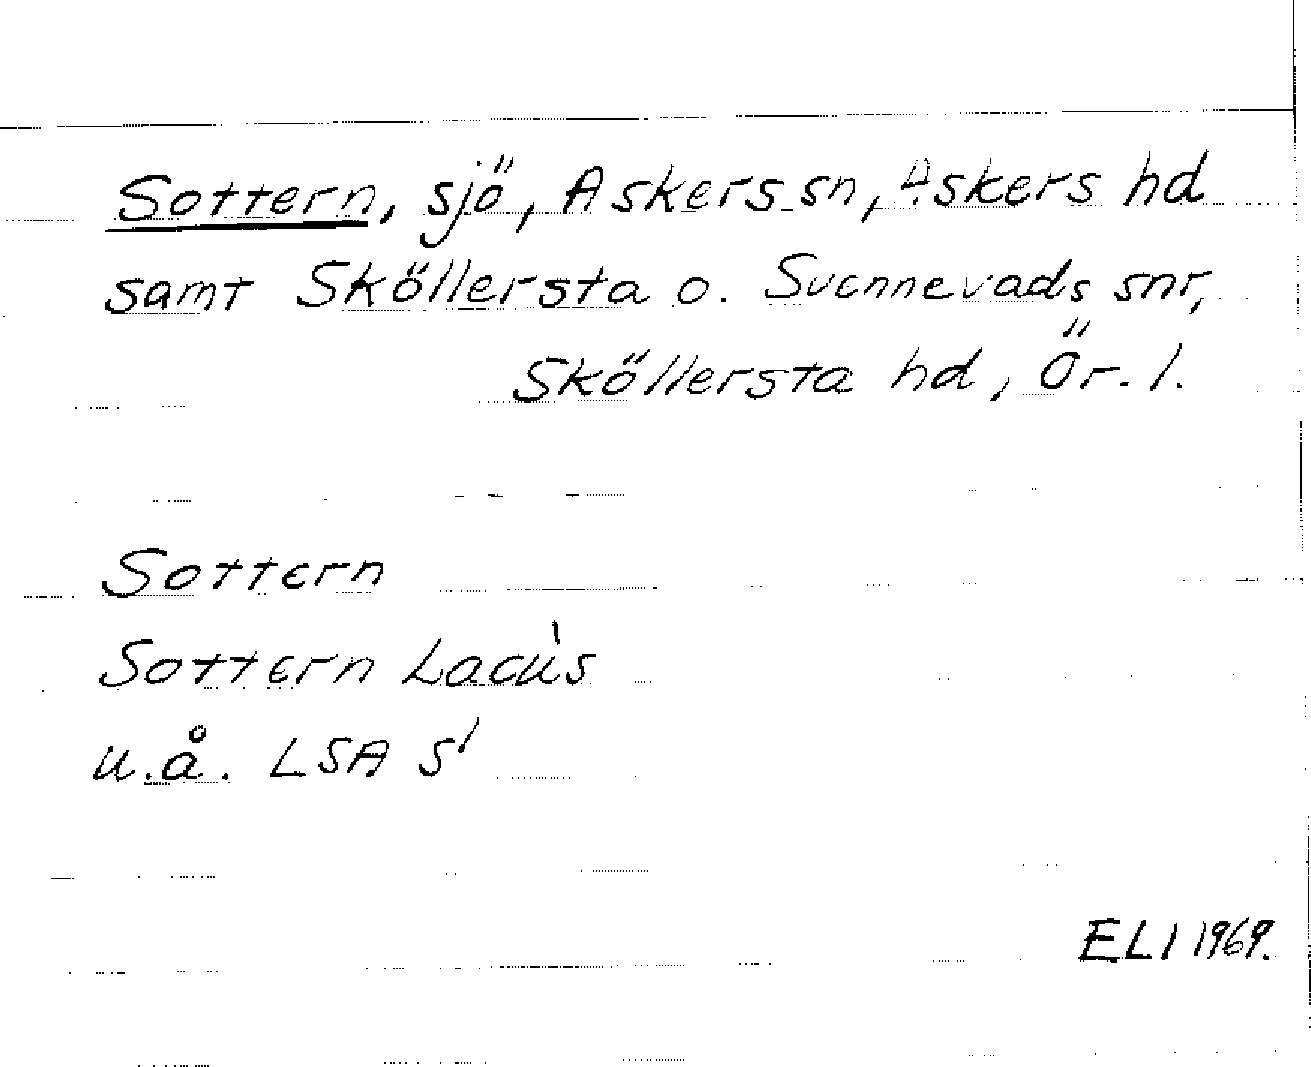 Sottern, sjö, Askers sn, Askers hd
samt Sköllersta o. Svennevads snr,
Sköllersta hd, Ör. l.
Sottern
Sottern Lacùs
u.å. LSA S1
ELI 1969.